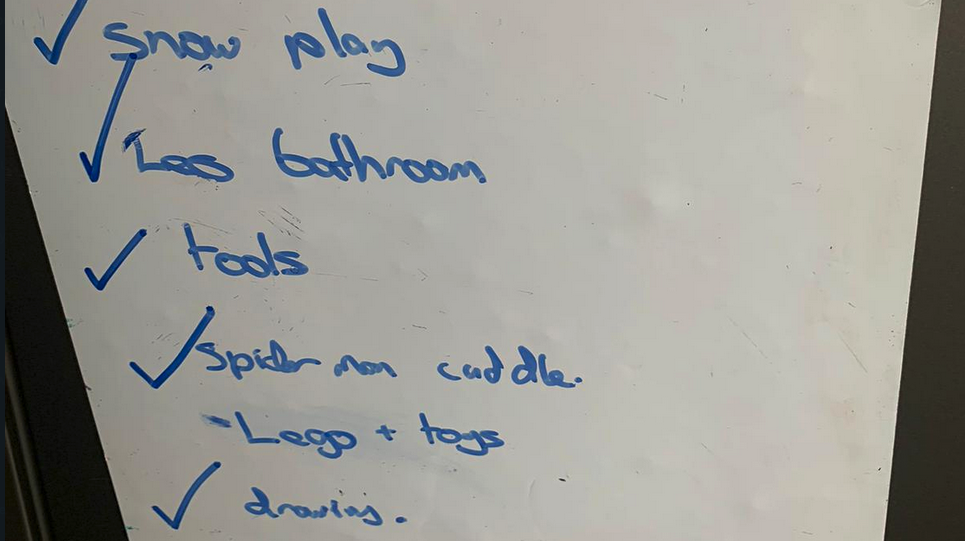 ✓ snow play
✓ Les bathroom
✓ tools
✓ Spider man cuddle.
- Lego + toys
✓ drawing.